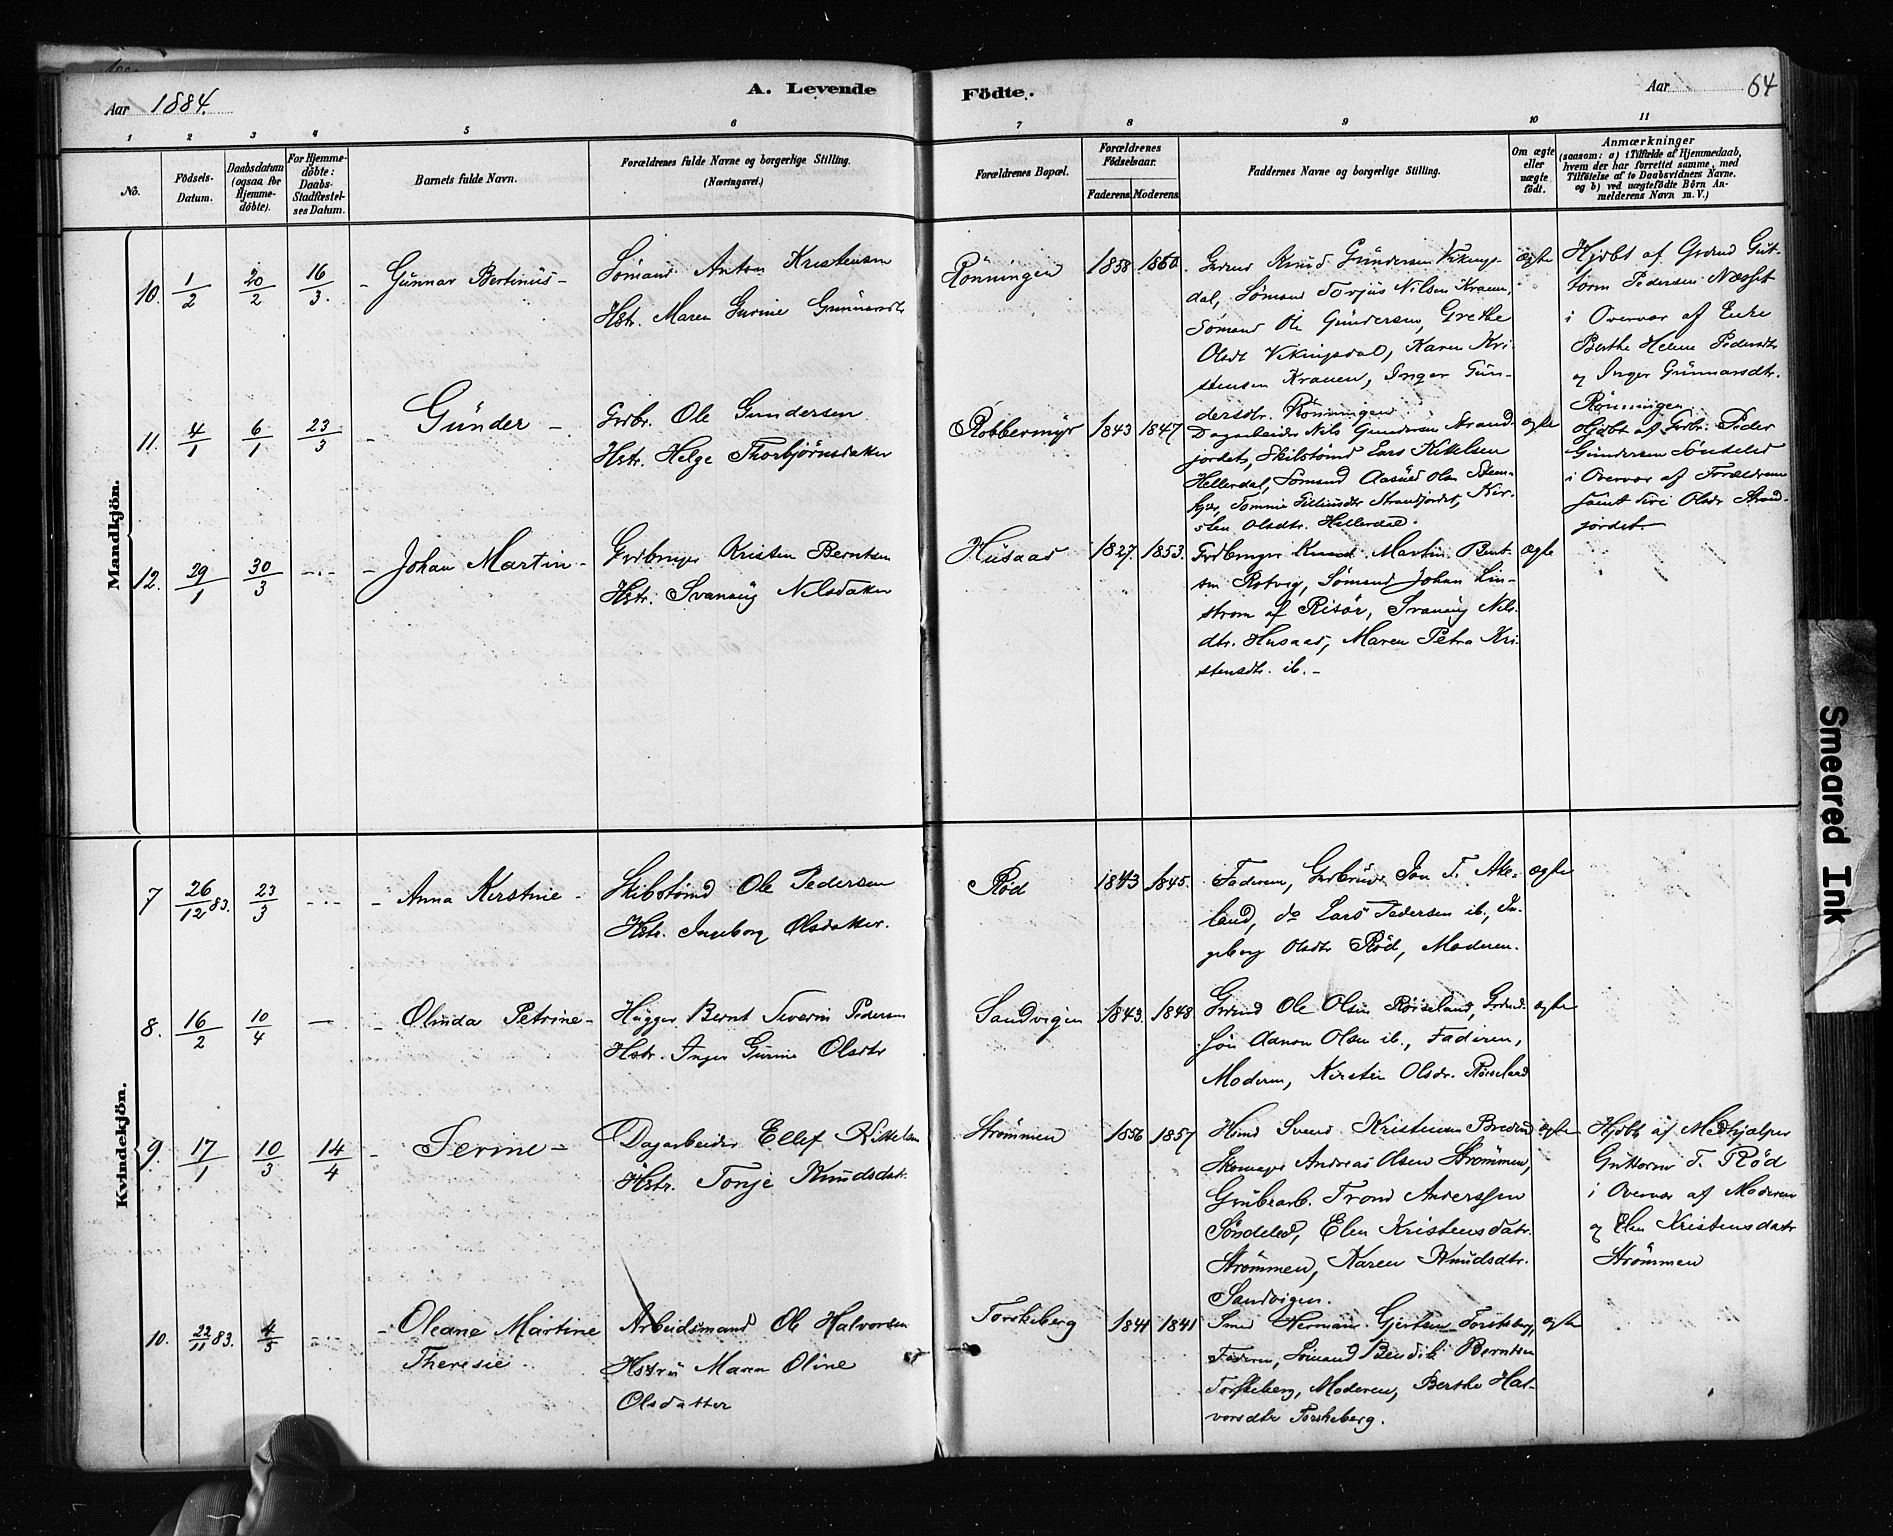 Aar 1884.
A. Levende Födte.
Aar
64
1 2 3 4 5 6 7 8 9 10 11
No.
Födsels-Datum.
Daabsdatum (ogsaa for Hjemme-döbte).
For Hjemme-döbte: Daabs-Stadfæstel-ses Datum.
Barnets fulde Navn.
Forældrenes fulde Navne og borgerlige Stilling. (Næringsvei.)
Forældrenes Bopæl.
Forældrenes Födselsaar.
Faderens. Moderens.
Faddernes Navne og borgerlige Stilling.
Om ægte eller uægte födt.
Anmærkninger
(saasom: a) i Tilfælde af Hjemmedaab,
hvem der har forrettet samme, med
Tilföielse af to Daabsvidners Navne.
og b) ved uægtefödte Börn An-
melderens Navn m. V.)
Mandkjön.
10. 1/2 20/2 16/3. - Gunnar Bertinius -
Sømand Anton Kristensen
Hstr. Maren Gurine Gunnarsdtr
Rønningen 1858 1860.
Grdmd Knud Gundersen Vikings-
dal, Sømand Torjus Nilsen Kranen,
Sømand Ole Gundersen, Grethe
Olsdtr Vikingsdal, Karen Kri-
stensen Kranen, Inger Gun-
dersdtr. Rønningen
ægte
Hjdbt af Grdmd Gut-
torm Pedersen Næsset
i Overvær af Enke
Berthe Helene Pedersdtr
og Inger Gunnarsdtr.
Rønningen
11. 4/1 6/1 23/3 - Günder -
Grdbr. Ole Gundersen
Hstr. Helge Thorbjørnsdatter
Robbermyr 1843 1847
Dagarbeider Nils Gundersen Strand-
jordet, Skibstømd Lars Kittelsen
Hellerdal, Sømand Aasuld Olsen
Tomine Strandjordet, Kir-
sten Olsdtr. Hellerdal.
ægte
Hjdbt af Grdbr. Peder
Gundersen Søndeled
i Overvær af Forældrene
samt Siri Olsdr Strand-
jordet.
12. 29/1 30/3 -·- - Johan Martin -
Grdbruger Kristen Berntsen
Hstr. Svanaug Nilsdatter
Husaas 1827. 1853.
Grdbruger Knud Martin Bent-
sen Rotvig, Sømand Johan Lin-
strøm af Risør, Svanaug Nils-
dtr. Husaas, Maren Petra Kri-
stensdtr. ib. -
ægte
Kvindekjön.
7 26/12 83. 23/3 - Anna Kirstine -
Skibstømd Ole Pedersen
Hstr. Ingeborg Olsdatter.
Rød 1843 1845.
Faderen, Grdbruger Jon T. Ake-
land, do Lars Pedersen ib, In-
geborg Olsdtr Rød, Moderen.
ægte
8. 16/2 10/4 — - Olinda Petrine -
Hugger Bernt Severin Pedersen
Hstr. Inger Gurine Olsdtr
Sandvigen 1843. 1848
Grdmd Ole Olsen Røiseland, Grdmd-
søn Aanon Olsen ib., Faderen,
Moderen, Kirstin Olsdr. Røiseland
ægte
9. 17/1 10/3 14/4 - Serine -
Dagarbeider Ellef Kittelsen
Hstr. Tonje Knudsdatr.
Strømmen 1856 1857
Hmd Svend Kristensen
Skomager Andreas Olsen Strømmen,
Grubearb. Trond Anderssen
Søndeled, Elen Kristensdatr.
Strømmen, Karen Knudsdtr.
Sandvigen.
ægte
Hjdbt af Medhjælper
Guttorm T. Rød
i Overvær af Moderen
og Elen Kristensdatr
Strømmen
10. 22/11 83. 4/5 - Oleane Martine
Theresie -
Arbeidsmand Ole Halvorsen
Hstru Maren Oline
Olsdatter
Torskeberg 1841 1841
Smed Herman Gjertsen Torskeberg,
Faderen, Sømand Bendik Berntsen
Torskeberg, Moderen, Berthe Hal-
vorsdtr Torskeberg.
ægte
Smeared Ink